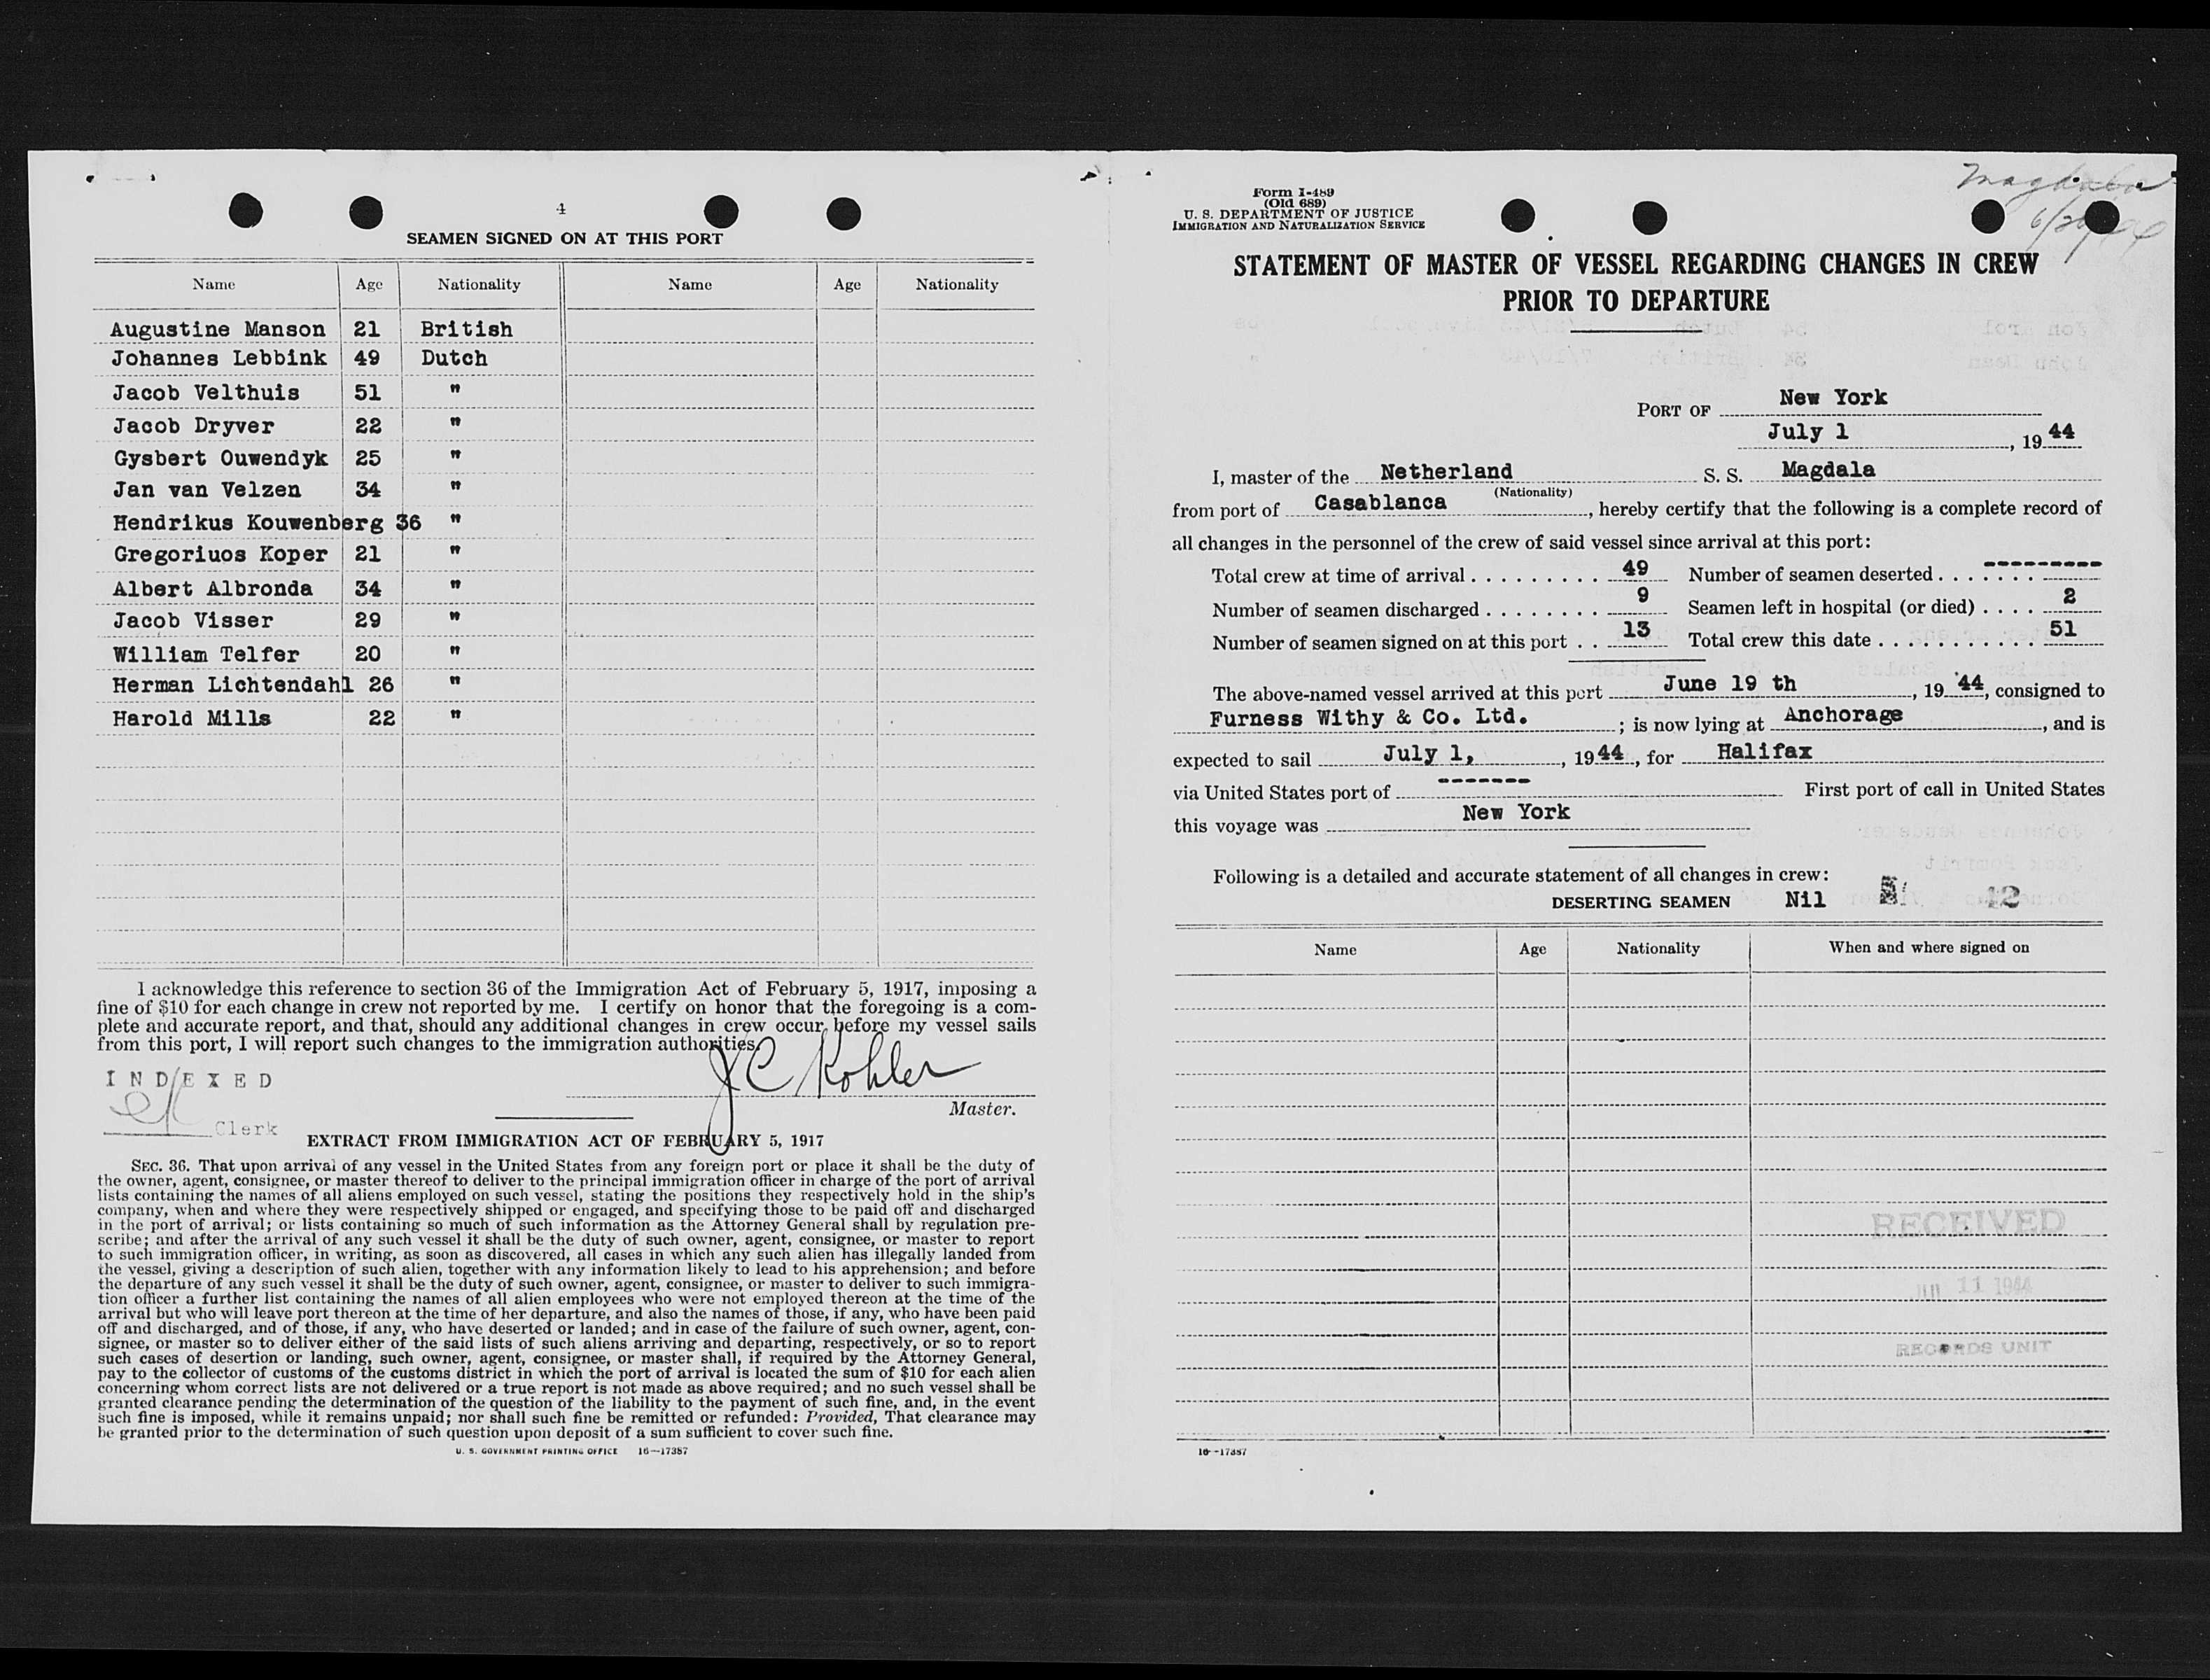 4
SEAMEN SIGNED ON AT THIS PORT
Name Age Nationality Name Age Nationality
Augustine Manson 21 British
Johannes Lebbink 49 Dutch
Jacob Velthuis 51 "
Jacob Dryver 22 "
Gysbert Ouwendyk 25 "
Jan van Velzen 34 "
Hendrikus Kouwenberg 36 "
Gregoriuos Koper 21 "
Albert Albronda 34 "
Jacob Visser 29 "
William Telfer 20 "
Herman Lichtendahl 26 "
Harold Mills 22 "
I acknowledge this reference to section 36 of the Immigration Act of February 5, 1917, imposing a
fine of $10 for each change in crew not reported by me. I certify on honor that the foregoing is a com-
plete and accurate report, and that, should any additional changes in crew occur before my vessel sails
from this port, I will report such changes to the immigration authorities.
J C Kohler
Master.
INDEXED
Clerk
EXTRACT FROM IMMIGRATION ACT OF FEBRUARY 5, 1917
SEC. 36. That upon arrival of any vessel in the United States from any foreign port or place it shall be the duty of
the owner, agent, consignee, or master thereof to deliver to the principal immigration officer in charge of the port of arrival
lists containing the names of all aliens employed on such vessel, stating the positions they respectively hold in the ship's
company, when and where they were respectively shipped or engaged, and specifying those to be paid off and discharged
in the port of arrival; or lists containing so much of such information as the Attorney General shall by regulation pre-
scribe; and after the arrival of any such vessel it shall be the duty of such owner, agent, consignee, or master to report
to such immigration officer, in writing, as soon as discovered, all cases in which any such alien has illegally landed from
the vessel, giving a description of such alien, together with any information likely to lead to his apprehension; and before
the departure of any such vessel it shall be the duty of such owner, agent, consignee, or master to deliver to such immigra-
tion officer a further list containing the names of all alien employees who were not employed thereon at the time of the
arrival but who will leave port thereon at the time of her departure, and also the names of those, if any, who have been paid
off and discharged, and of those, if any, who have deserted or landed; and in case of the failure of such owner, agent, con-
signee, or master so to deliver either of the said lists of such aliens arriving and departing, respectively, or so to report
such cases of desertion or landing, such owner, agent, consignee, or master shall, if required by the Attorney General,
pay to the collector of customs of the customs district in which the port of arrival is located the sum of $10 for each alien
concerning whom correct lists are not delivered or a true report is not made as above required; and no such vessel shall be
granted clearance pending the determination of the question of the liability to the payment of such fine, and, in the event
such fine is imposed, while it remains unpaid; nor shall such fine be remitted or refunded: Provided, That clearance may
be granted prior to the determination of such question upon deposit of a sum sufficient to cover such fine.
U. S. GOVERNMENT PRINTING OFFICE 16—17387
Magdala
Form I-489
(Old 689)
U. S. DEPARTMENT OF JUSTICE
IMMIGRATION AND NATURALIZATION SERVICE
STATEMENT OF MASTER OF VESSEL REGARDING CHANGES IN CREW
PRIOR TO DEPARTURE
PORT OF New York
July 1, 1944
I, master of the Netherland S. S. Magdala
(Nationality)
from port of Casablanca, hereby certify that the following is a complete record of
all changes in the personnel of the crew of said vessel since arrival at this port:
Total crew at time of arrival 49 Number of seamen deserted -------
Number of seamen discharged 9 Seamen left in hospital (or died) 2
Number of seamen signed on at this port 13 Total crew this date 51
The above-named vessel arrived at this port June 19 th, 19 '44, consigned to
Furness Withy & Co. Ltd.; is now lying at Anchorage, and is
expected to sail July 1, 1944, for Halifax
via United States port of ------- First port of call in United States
this voyage was New York
Following is a detailed and accurate statement of all changes in crew:
DESERTING SEAMEN Nil 12
Name Age Nationality When and where signed on
RECEIVED
JUL 11 1944
RECORDS UNIT
16—17387